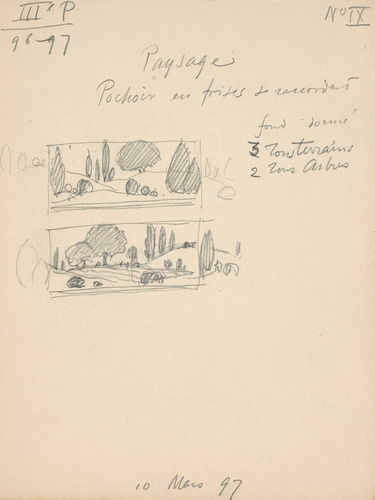 IIIe P
96-97
No IX
Paysage
Pochoir en frises se raccordant
fond donné
3 Tons terrains
2 Tons Arbres
10 Mars 97